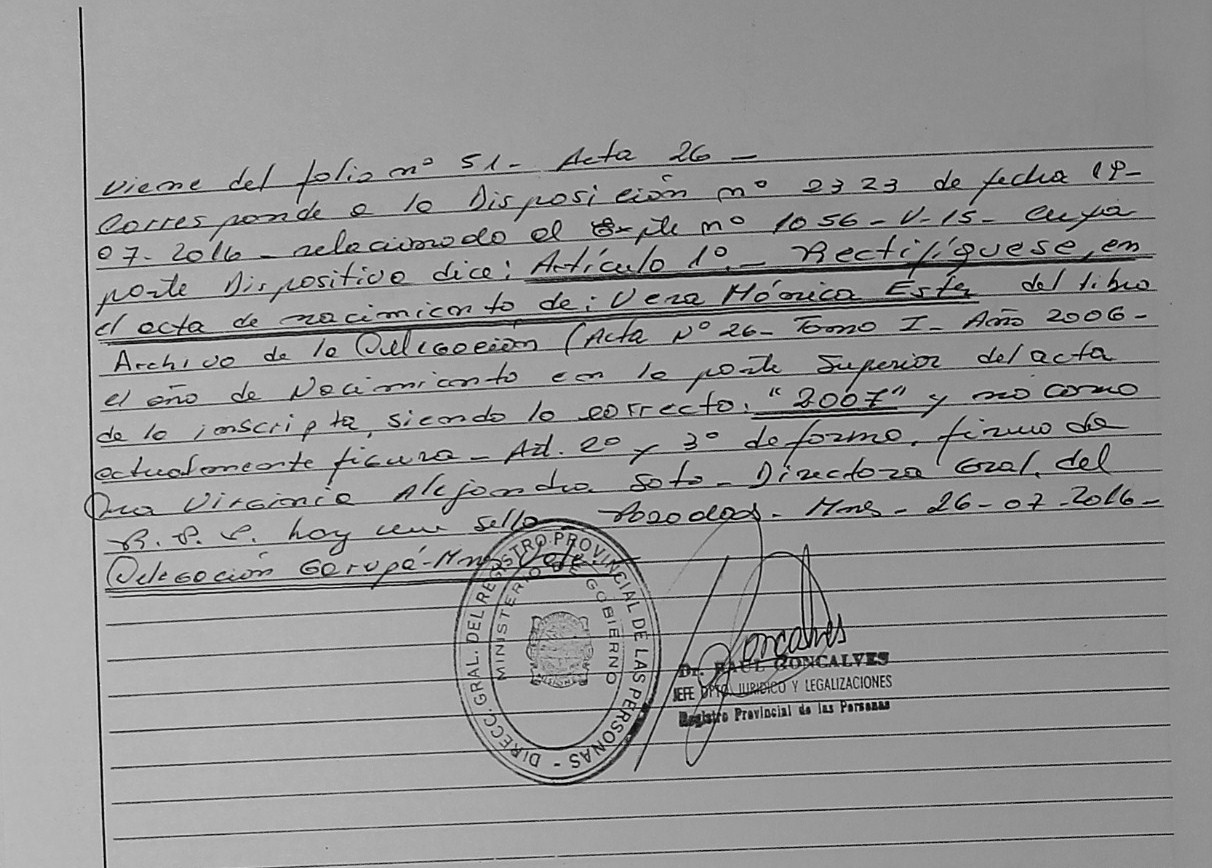 Viene del folio nº 51- Acta 26 -
Corresponde a la Disposición nº 2323 de fecha 19-
07-2016- relacionado el Expte nº 1056-V-15- cuya
parte Dispositiva dice: Artículo 1º.- Rectifíquese, en
el acta de nacimiento de: Vera Mónica Ester del libro
Archivo de la Delegación (Acta Nº 26- Tomo I- Año 2006-
el año de Nacimiento en la parte Superior del acta
de la inscripta, siendo lo correcto: "2007" y no como
actualmente figura- Art. 2º y 3º de forma. firma de
Dra Virginia Alejandra Soto- Directora Gral. del
R.P.P. hay un sello Posadas- Mnes- 26-07-2016-
Delegación Garupá-Mnes Vale.
DIRECC. GRAL. DEL REGISTRO PROVINCIAL DE LAS PERSONAS -
MINISTERIO DE GOBIERNO
Goncalves
Dr. RAUL GONCALVES
JEFE DPTO. JURIDICO Y LEGALIZACIONES
Registro Provincial de las Personas